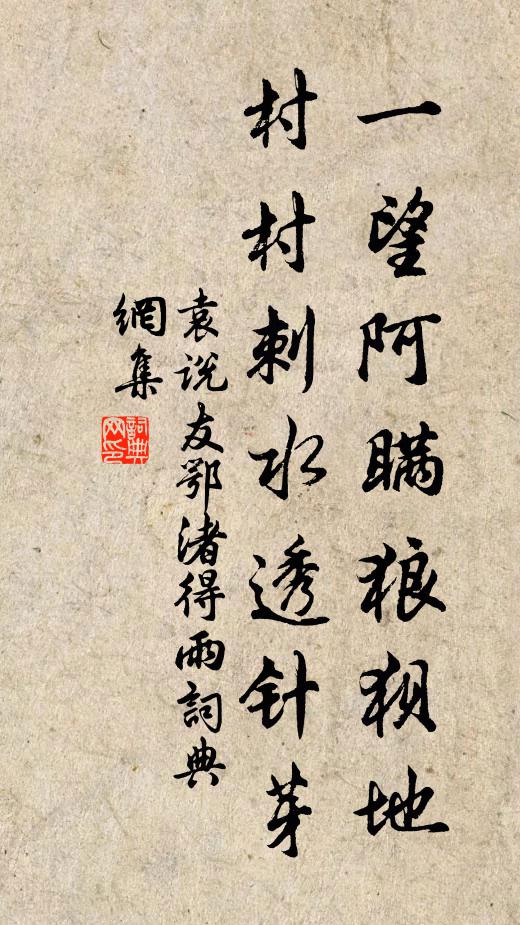 一望阿瞞狼狽地
村村刺水透针芽
袁说友鄂渚得雨詞典
網集
詞典網印